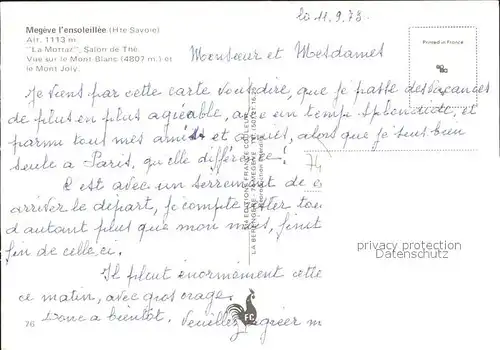 Megève l'ensoleillée (Hte-Savoie)
Alt. 1113 m
"La Mottaz", Salon de Thé.
Vue sur le Mont-Blanc (4807 m.) et
le Mont Joly.
le 11.9.78
Printed in France
Monsieur et Mesdames
Je viens par cette carte vous dire, que je passe des vacances
de plus en plus agréable, avec un temps splendide, et
parmi tous mes amis et amies, alors que je suis bien
seule à Paris, quelle différence!
74
C'est avec un serrement de
arriver le départ, je compte rester
d'autant plus que mon mari, finit
fin de celle ci.
Il pleut énormément cette
ce matin, avec gros orage.
Donc a bientôt. Veuillez agréer m
76
EDITIONS FRANCE COULEUR
LA BERENGERE - 74 MEGEVE - TEL (50)
Reproduction interdite
FC
privacy protection
Datenschutz